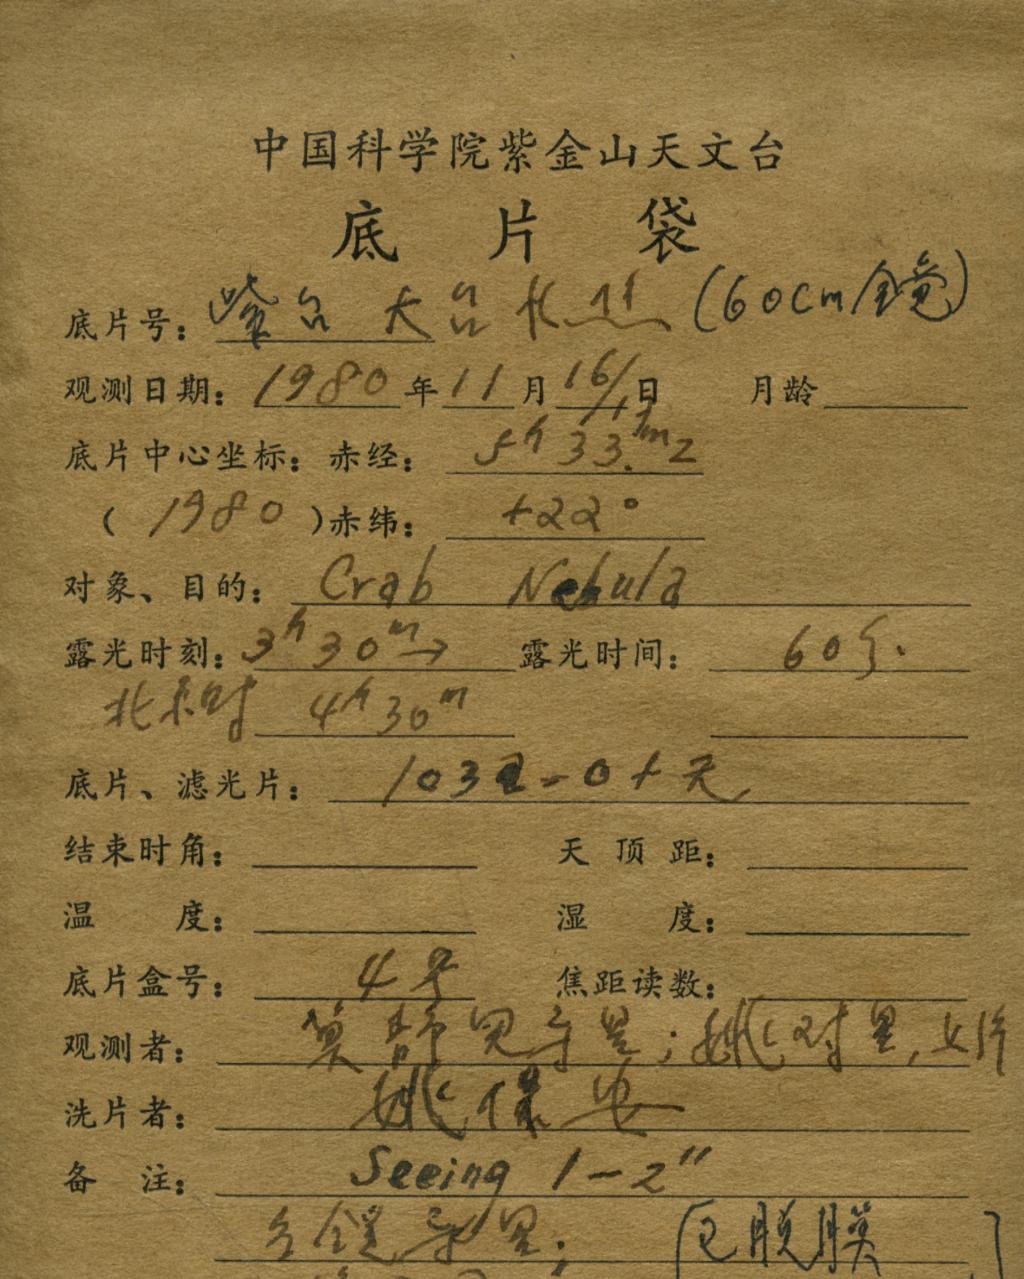 中国科学院紫金山天文台
底 片 袋
底片号: 紫台 (60cm镜)
观测日期: 1980 年 11 月 16/17 日 月龄
底片中心坐标: 赤经: 5h 33.m2
( 1980 )赤纬: +22°
对象、目的: Crab Nebula
露光时刻: 3h 30m→ 露光时间: 60分.
北京时 4h 30m
底片、滤光片: 103a-O+无
结束时角: 天顶距:
温 度: 湿 度:
底片盒号: 4号 焦距读数:
观测者:
洗片者: 姚保安
备 注: Seeing 1-2"
导星; [已脱膜]